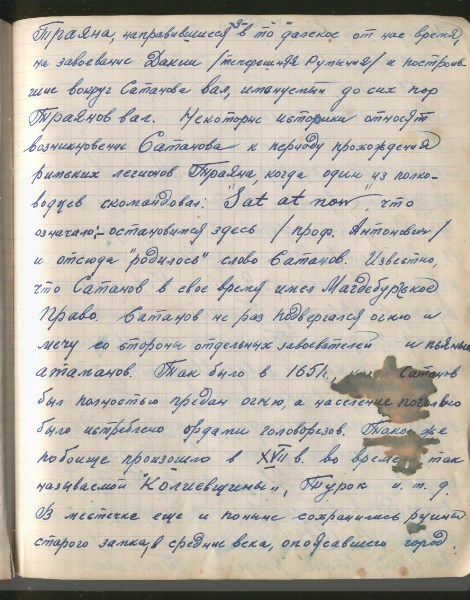 -3-
Траяна, направившиеся в то далекое от нас время,
на завоевание Дакии /теперешняя Румыния/ и построив-
шие вокруг Сатанова вал, именуемый до сих пор
Траянов вал. Некоторые историки относят
возникновение Сатанова к периоду прохождения
римских легионов Траяна, когда один из полко-
водцев скомандовал: "Sat at now", что
означало:- остановится здесь /проф. Антонович/
и отсюда "родилось" слово Сатанов. Известно,
что Сатанов в свое время имел Магдебургское
Право. Сатанов не раз подвергался огню и
мечу со стороны отдельных завоевателей и пьяных
атаманов. Так было в 1651г., Сатанов
был полностью предан огню, а население поголовно
было истреблено ордами головорезов. Такое же
побоище произошло в XVII в. во время так
называемой "Колиевщины", Турок и. т. д.
В местечке еще и поныне сохранились руины
старого замка, в средние века, опоясавшего город.